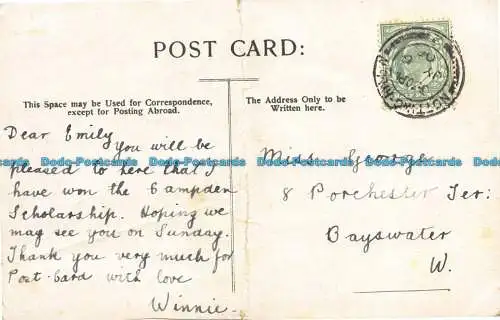 POST CARD:
This Space may be Used for Correspondence,
except for Posting Abroad.
The Address Only to be
Written here.
Dear Emily
You will be
pleased to here that I
have won the Campden
Scholarship. Hoping we
may see you on Sunday.
Thank you very much for
Post-card with love
Winnie.
Miss George
8 Porchester Ter:
Bayswater
W.
Dodo-Postcards Dodo-Postcards Dodo-Postcards Dodo-Postcards
Dodo-Postcards Dodo-Postcards Dodo-Postcards Dodo-Postcards